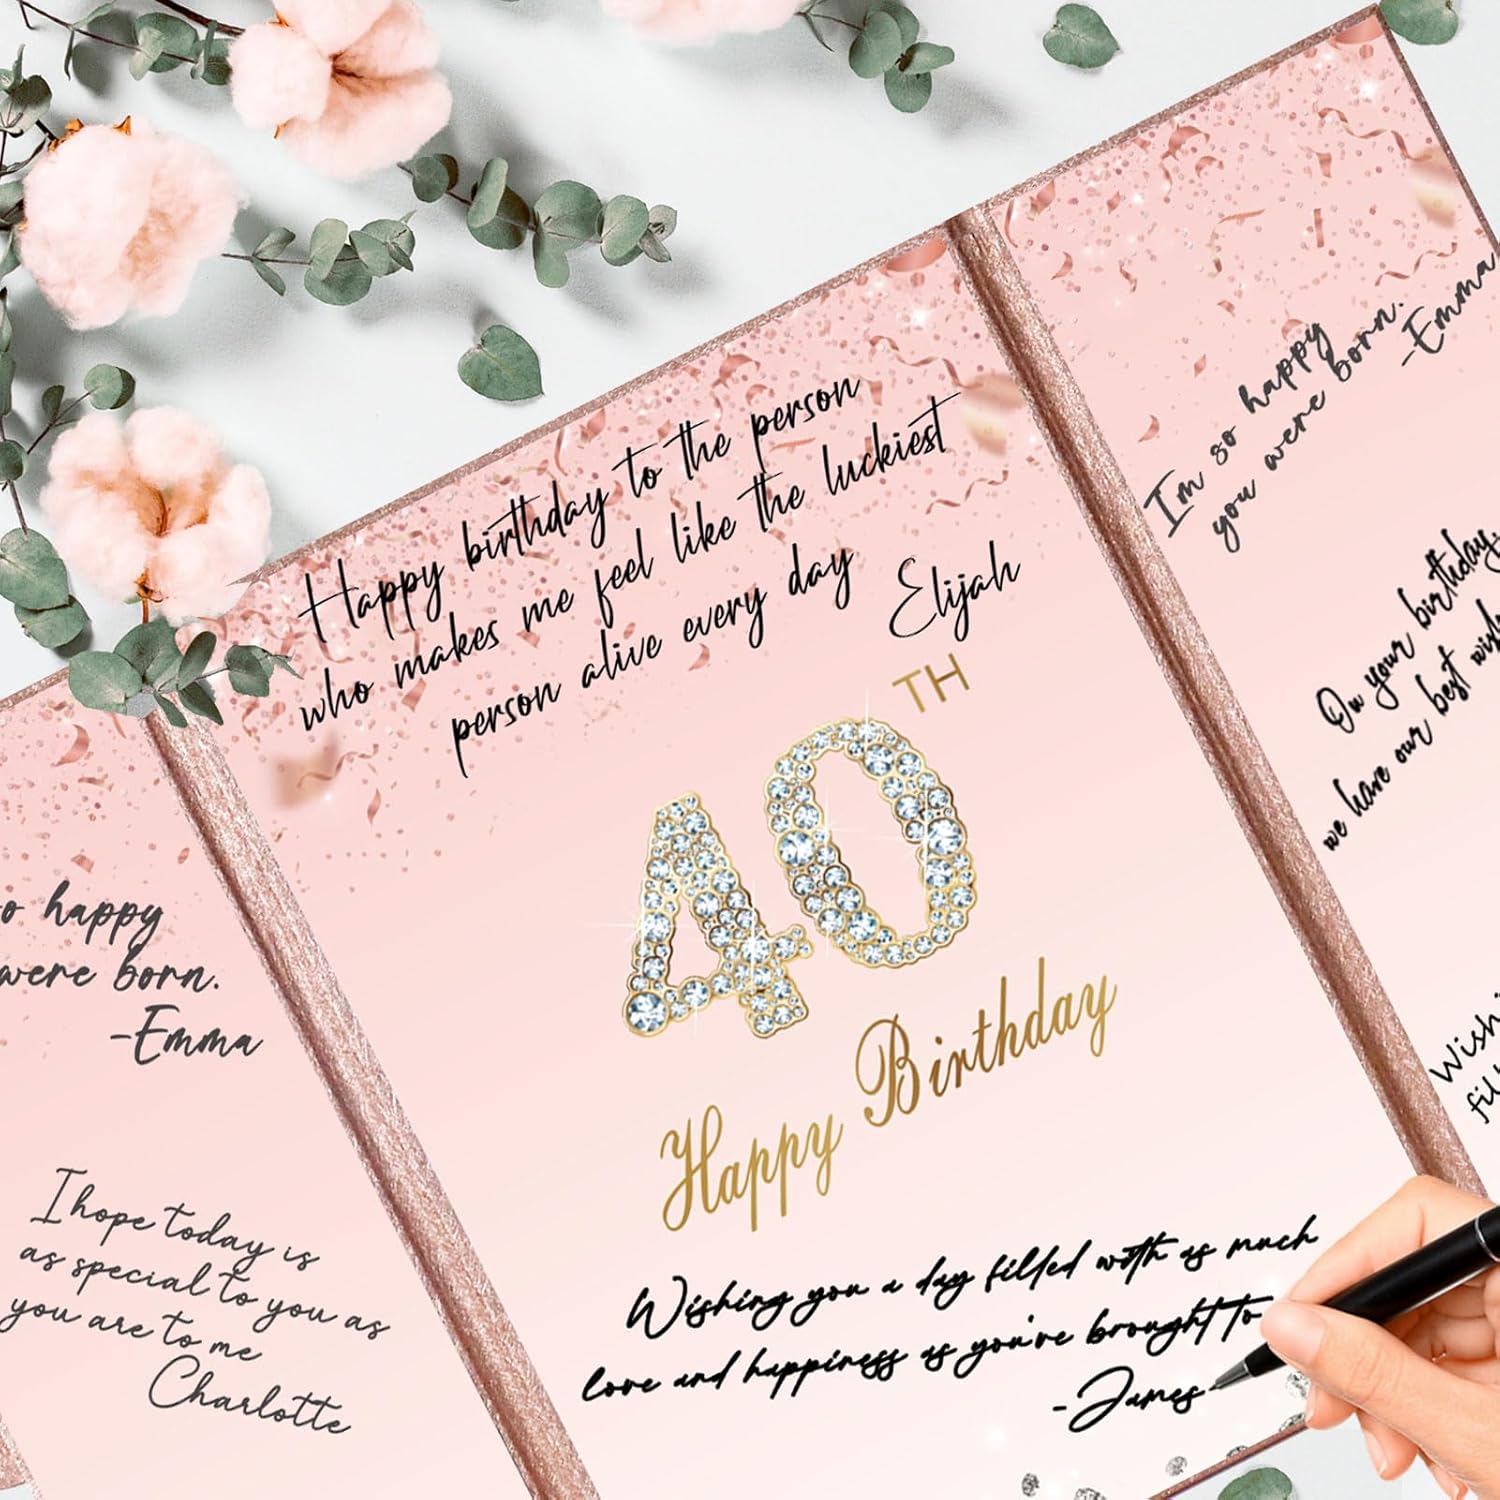 Happy birthday to the person
who makes me feel like the luckiest
person alive every day
Elijah
TH
40
Happy Birthday
Wishing you a day filled with as much
love and happiness as you're brought to
-James
happy
were born.
-Emma
I hope today is
as special to you as
you are to me
Charlotte
I'm so happy
you were born.
-Emma
On your birthday,
we have our best